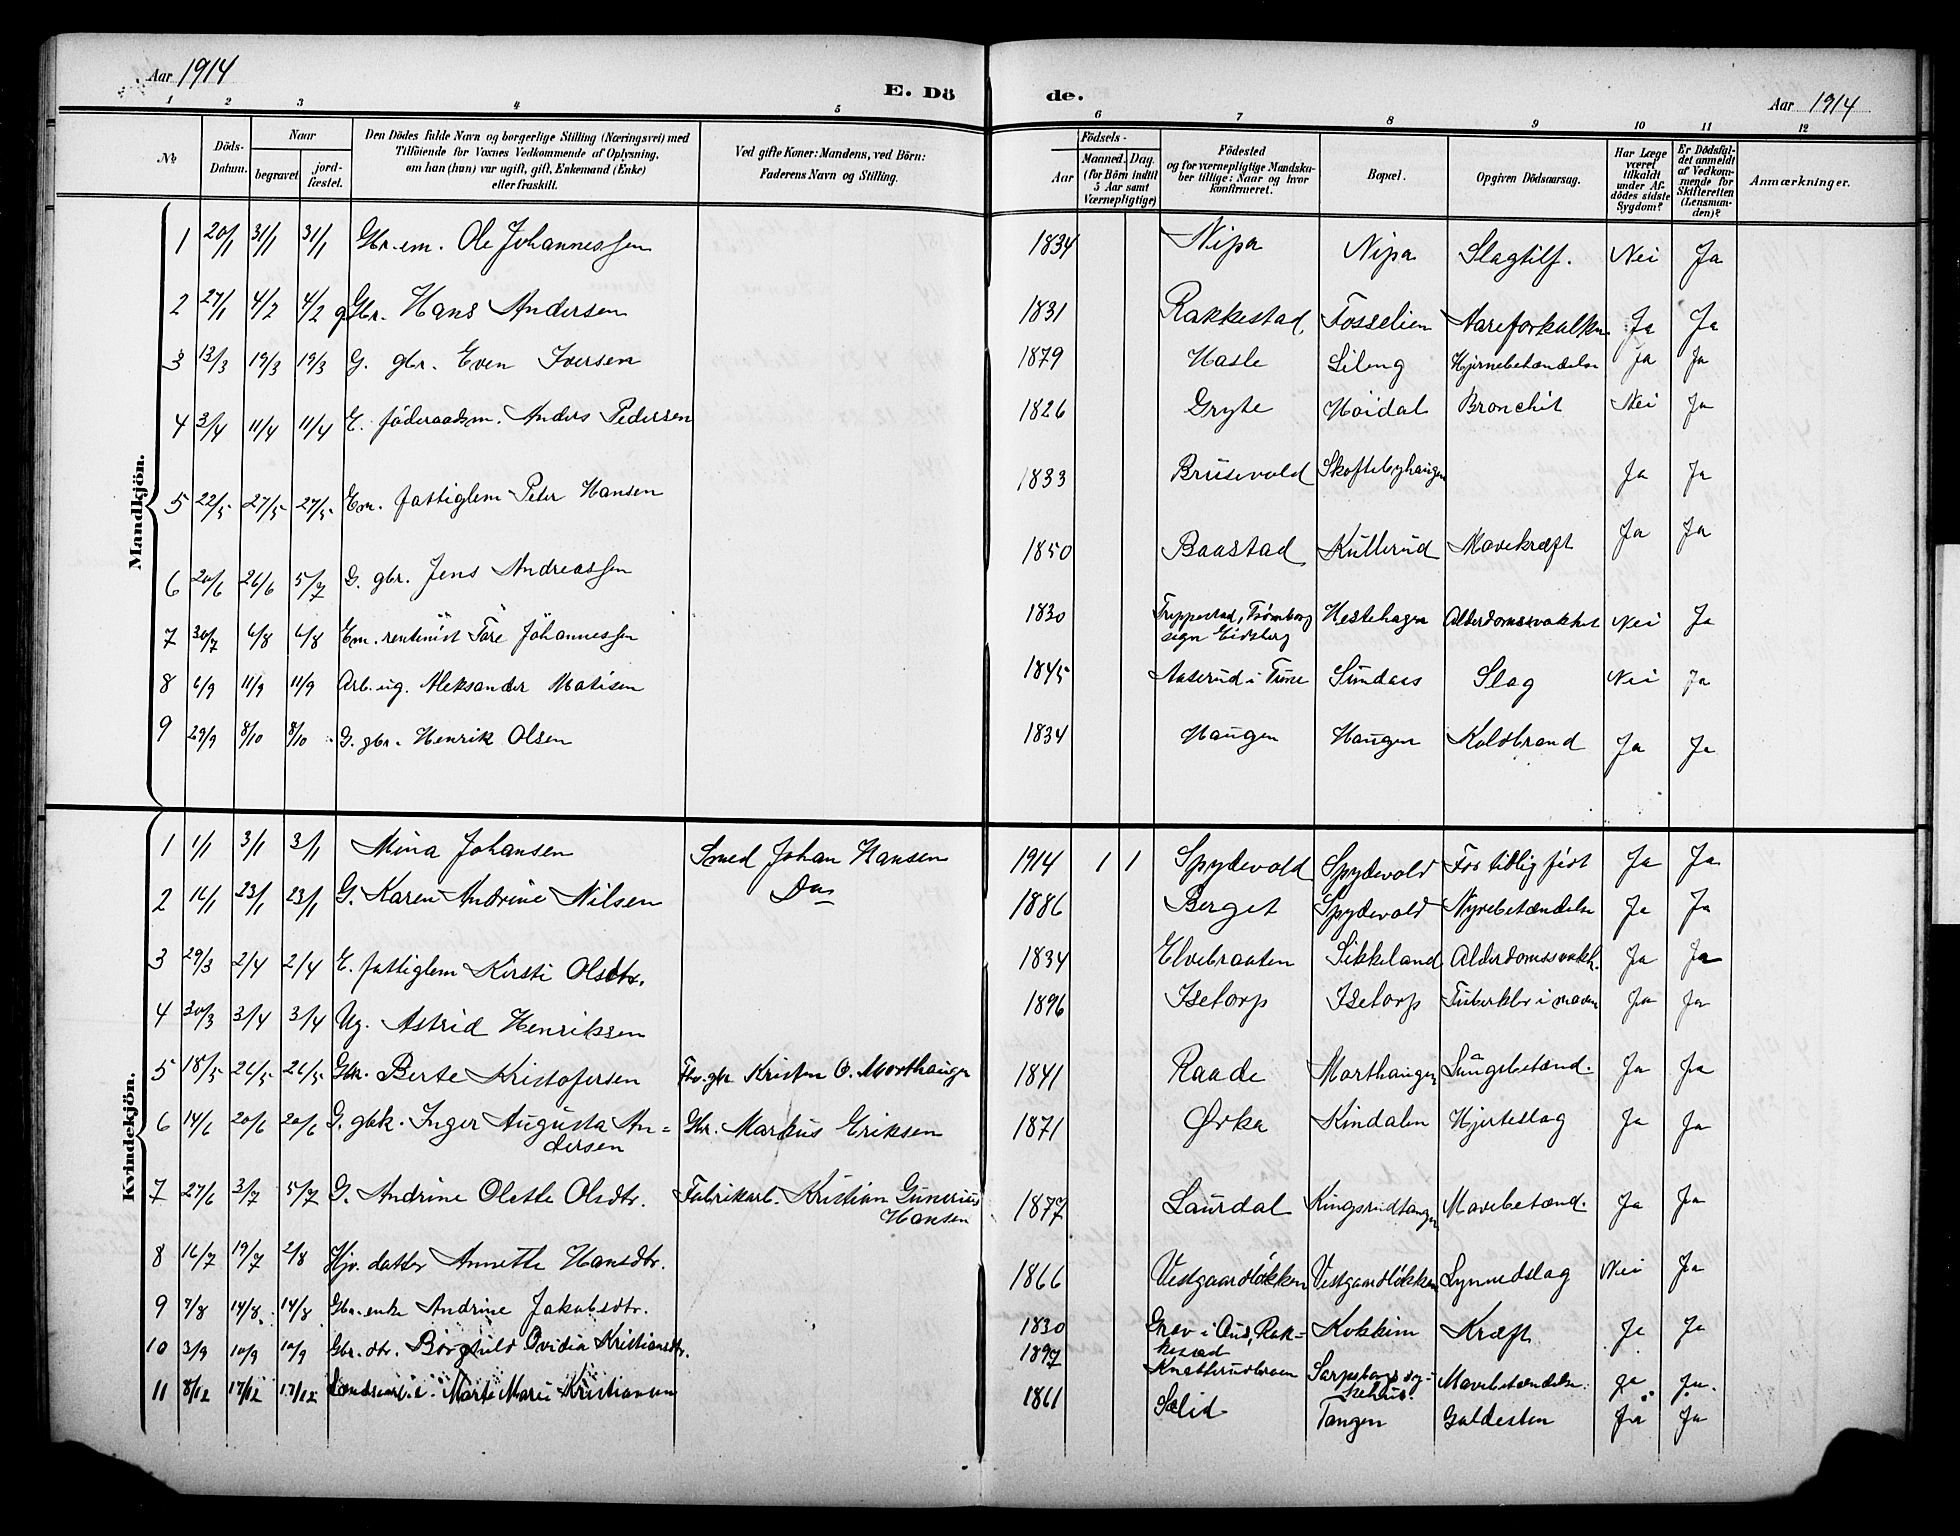 Aar 1914
E. Dö de.
Aar 1914
1 2 3 4 5 6 7 8 9 10 11 12
No
Döds-Datum.
Naar
begravet
jord-fæstet.
Den Dödes fulde Navn og borgerlige Stilling (Næringsvei) med
Tilföiende for Voxnes Vedkommende af Oplysning,
om han (hun) var ugift, gift, Enkemand (Enke)
eller fraskilt.
Ved gifte Koner: Mandens, ved Börn:
Faderens Navn og Stilling.
Födsels-
Aar
Maaned. Dag.
(for Börn indtil
5 Aar samt
Værnepligtige)
Födested
og for værnepligtige Mandska-
ber tillige: Naar og hvor
konfirmeret.
Bopæl.
Opgiven Dödsaarsag.
Har Læge
været
tilkaldt
under Af-
dödes sidste
Sygdom?
Er Dödsfal-
det anmeldt
af Vedkom-
mende for
Skifteretten
(Lensman-
den)?
Anmærkninger.
Mandkjön.
1 20/1 31/1 31/1 Gbr. em. Ole Johannessen 1834 Nipa Nipa Slagtilf. Nei Ja
2 27/1 4/2 4/2 g Gbr. Hans Andersen 1831 Rakkestad Fosselien Aareforkalkn. Ja Ja
3 13/3 19/3 19/3 G. gbr. Even Iversen 1879 Hasle Lileng Hjernebetændelse Ja Ja
4 3/4 11/4 11/4 E. föderaadsm. Anders Pedersen 1826 Gryte Höidal Bronchit Nei Ja
5 22/5 27/5 27/5 Em. fattiglem Peter Hansen 1833 Brusevold Skoftebyhaugen Ja Ja
6 20/6 26/6 5/7 G. gbr. Jens Andreassen 1850 Baastad Kullerud Mavekræft Ja Ja
7 30/7 6/8 6/8 Em. rentenist Tore Johannessen 1830 Treppestad, Trømborg
sogn Eidsberg Hestehagen Alderdomssvakhet Nei Ja
8 6/9 11/9 11/9 Arb. ug. Aleksander Matisen 1845 Aaserud i Tune Sundaas Slag Nei Ja
9 29/9 8/10 8/10 G. gbr. Henrik Olsen 1834 Haugen Haugen Koldbrand Ja Ja
Kvindekjön.
1 1/1 3/1 3/1 Mina Johansen Smed Johan Hansen 1914 1 1 Spydevold Spydevold For tidlig født Ja Ja
2 16/1 23/1 23/1 G. Karen Andrine Nilsen Do 1886 Berget Spydevold Nyrebetændelse Ja Ja
3 29/3 2/4 2/4 E. fattiglem Kirsti Olsdtr. 1834 Elvebraaten Sikkeland Alderdomssvakh. Ja Ja
4 30/3 3/4 3/4 Ug. Astrid Henriksen 1896 Isetorp Isetorp Tuberklr i maven Ja Ja
5 18/5 26/5 26/5 Gbk. Berte Kristofersen Fhv. gbr Kristen O. Morthaugen 1841 Raade Morthaugen Lungebetænd. Ja Ja
6 14/6 20/6 20/6 G. gbk. Inger Augusta An=
dersen Gbr. Markus Eriksen 1871 Ørka Kindalen Hjerteslag Ja Ja
7 27/6 3/7 5/7 G. Andrine Olette Olsdtr. Fabrikarb. Kristian Gunerius
Hansen 1877 Laurdal Kingsrudtangen Mavebetænd. Ja Ja
8 16/7 19/7 2/8 Hjv. datter Annette Hansdtr. 1866 Vestgaardløkken Vestgaardløkken Lynnedslag Nei Ja
9 7/8 14/8. 14/8 Gbr. enke Andrine Jakobsdtr. 1830 Grav i Aus, Rak-
kestad Kokkim Kræft Ja Ja
10 3/9 10/9 10/9 Gbr. dtr. Borghild Ovidia Kristiansdtr. 1897 Knatterudbraten Sarpsborgs syg=
kehus. Mavebetændelse. ja ja.
11 8/12 17/12 17/12 Marte Marie Kristiansen 1861 Solid Tangen Galdesten Ja Ja